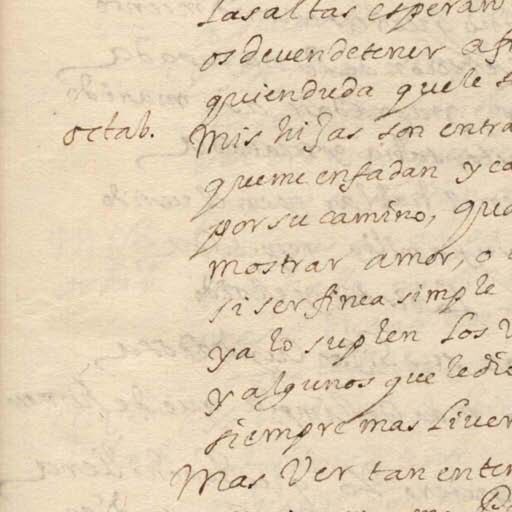 Las altas esperan
os deven detener a fu
quien duda que le s
octab. Mis hijas son entra
que me enfadan y ca
por su camino, qua
mostrar amor, o
si ser finca simple
ya lo suplen los V
y algunos que le die
siempre mas liver
Mas Ver tan enter